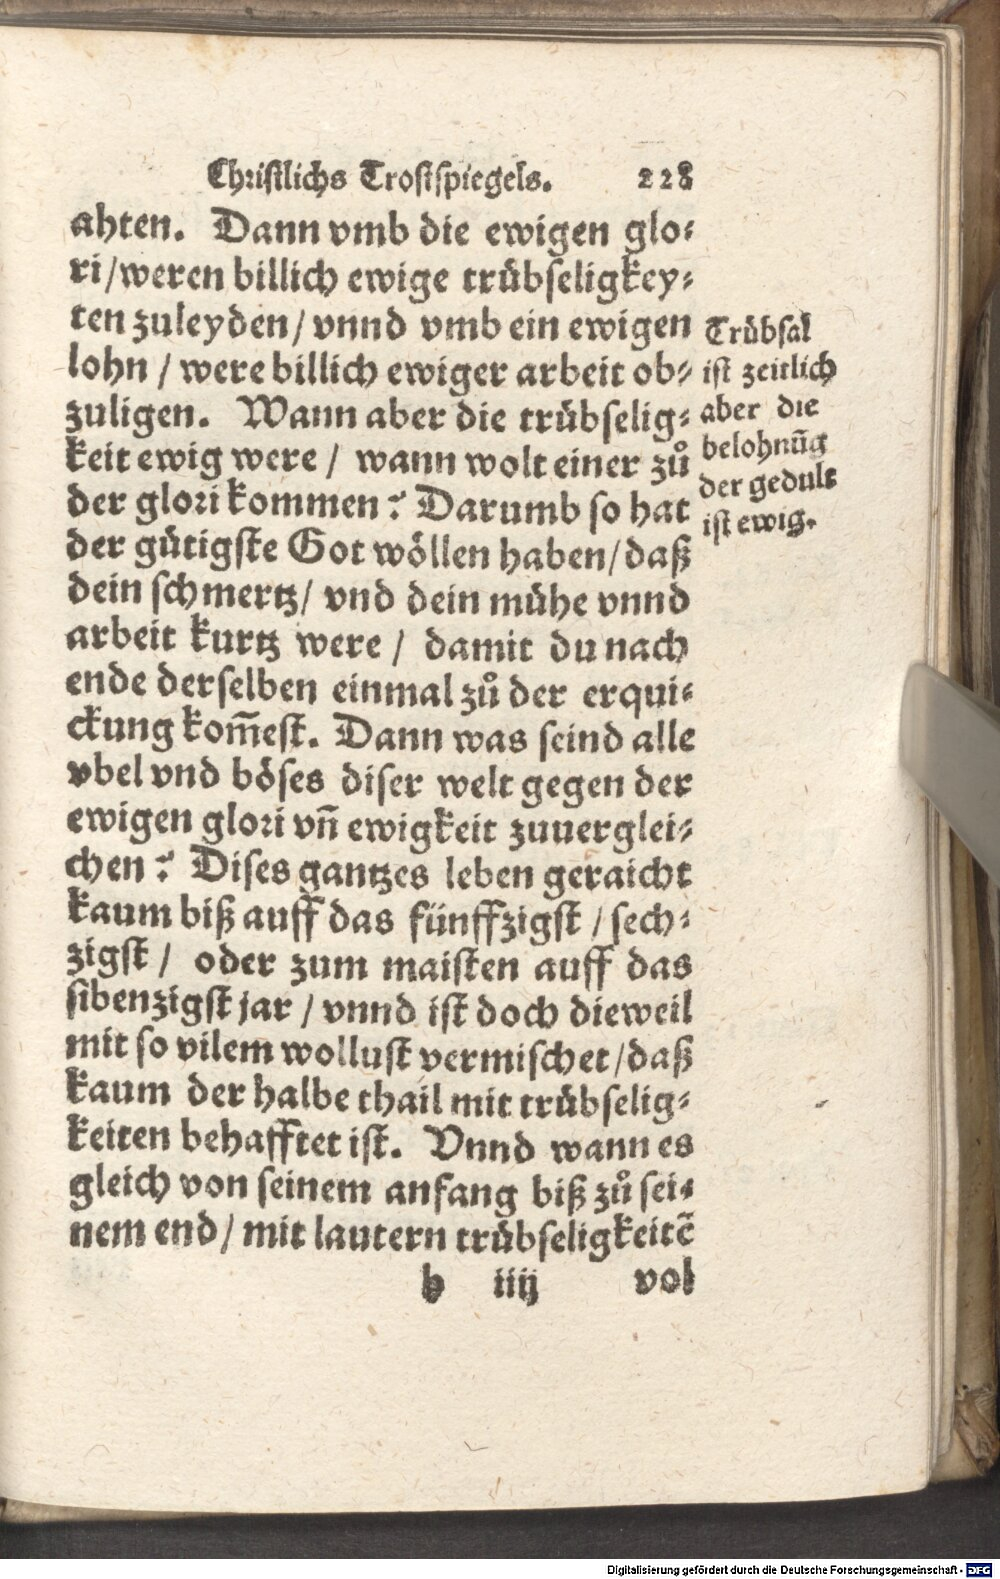 Christlichs Trostspiegels. 228
ahten. Dann vmb die ewigen glo⸗
ri/weren billich ewige trübseligkey⸗
ten zuleyden/ vnnd vmb ein ewigen
lohn / were billich ewiger arbeit ob⸗
zuligen. Wann aber die trübselig⸗
keit ewig were / wann wolt einer zů
der glori kommen? Darumb so hat
der gütigste Got wöllen haben/daß
dein schmertz/ vnd dein mühe vnnd
arbeit kurtz were / damit du nach
ende derselben einmal zů der erqui⸗
ckung kom̃est. Dann was seind alle
vbel vnd böses diser welt gegen der
ewigen glori vñ ewigkeit zuuerglei⸗
chen? Dises gantzes leben geraicht
kaum biß auff das fünffzigst / sech⸗
zigst / oder zum maisten auff das
sibenzigst jar / vnnd ist doch dieweil
mit so vilem wollust vermischet/daß
kaum der halbe thail mit trübselig⸗
keiten behafftet ist. Vnnd wann es
gleich von seinem anfang biß zů sei⸗
nem end/ mit lautern trübseligkeitẽ
h iiij vol
Trübsal
ist zeitlich
aber die
belohnũg
der gedult
ist ewig.
Digitalisierung gefördert durch die Deutsche Forschungsgemeinschaft - DFG